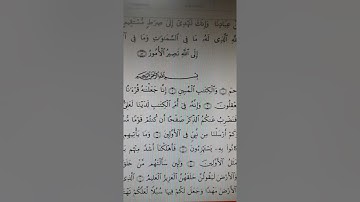 عِبَادِنَا وَإِنَّكَ لَتَهْدِىٓ إِلَىٰ صِرَٰطٍ مُّسْتَقِيمٍ
ٱللَّهِ ٱلَّذِى لَهُۥ مَا فِى ٱلسَّمَٰوَٰتِ وَمَا فِى
إِلَى ٱللَّهِ تَصِيرُ ٱلْأُمُورُ ٥٣
بِسْمِ ٱللَّهِ ٱلرَّحْمَٰنِ ٱلرَّحِيمِ
حمٓ ١ وَٱلْكِتَٰبِ ٱلْمُبِينِ ٢ إِنَّا جَعَلْنَٰهُ قُرْءَٰنًا
تَعْقِلُونَ ٣ وَإِنَّهُۥ فِىٓ أُمِّ ٱلْكِتَٰبِ لَدَيْنَا لَعَلِىٌّ
أَفَنَضْرِبُ عَنكُمُ ٱلذِّكْرَ صَفْحًا أَن كُنتُمْ قَوْمًا
وَكَمْ أَرْسَلْنَا مِن نَّبِىٍّ فِى ٱلْأَوَّلِينَ ٦ وَمَا يَأْتِيهِم
كَانُوا۟ بِهِۦ يَسْتَهْزِءُونَ ٧ فَأَهْلَكْنَآ أَشَدَّ مِنْهُم
مَثَلُ ٱلْأَوَّلِينَ ٨ وَلَئِن سَأَلْتَهُم مَّنْ خَلَقَ
وَٱلْأَرْضَ لَيَقُولُنَّ خَلَقَهُنَّ ٱلْعَزِيزُ ٱلْعَلِيمُ ٩
ٱلْأَرْضَ مَهْدًا وَجَعَلَ لَكُمْ فِيهَا سُبُلًا لَّعَلَّكُمْ